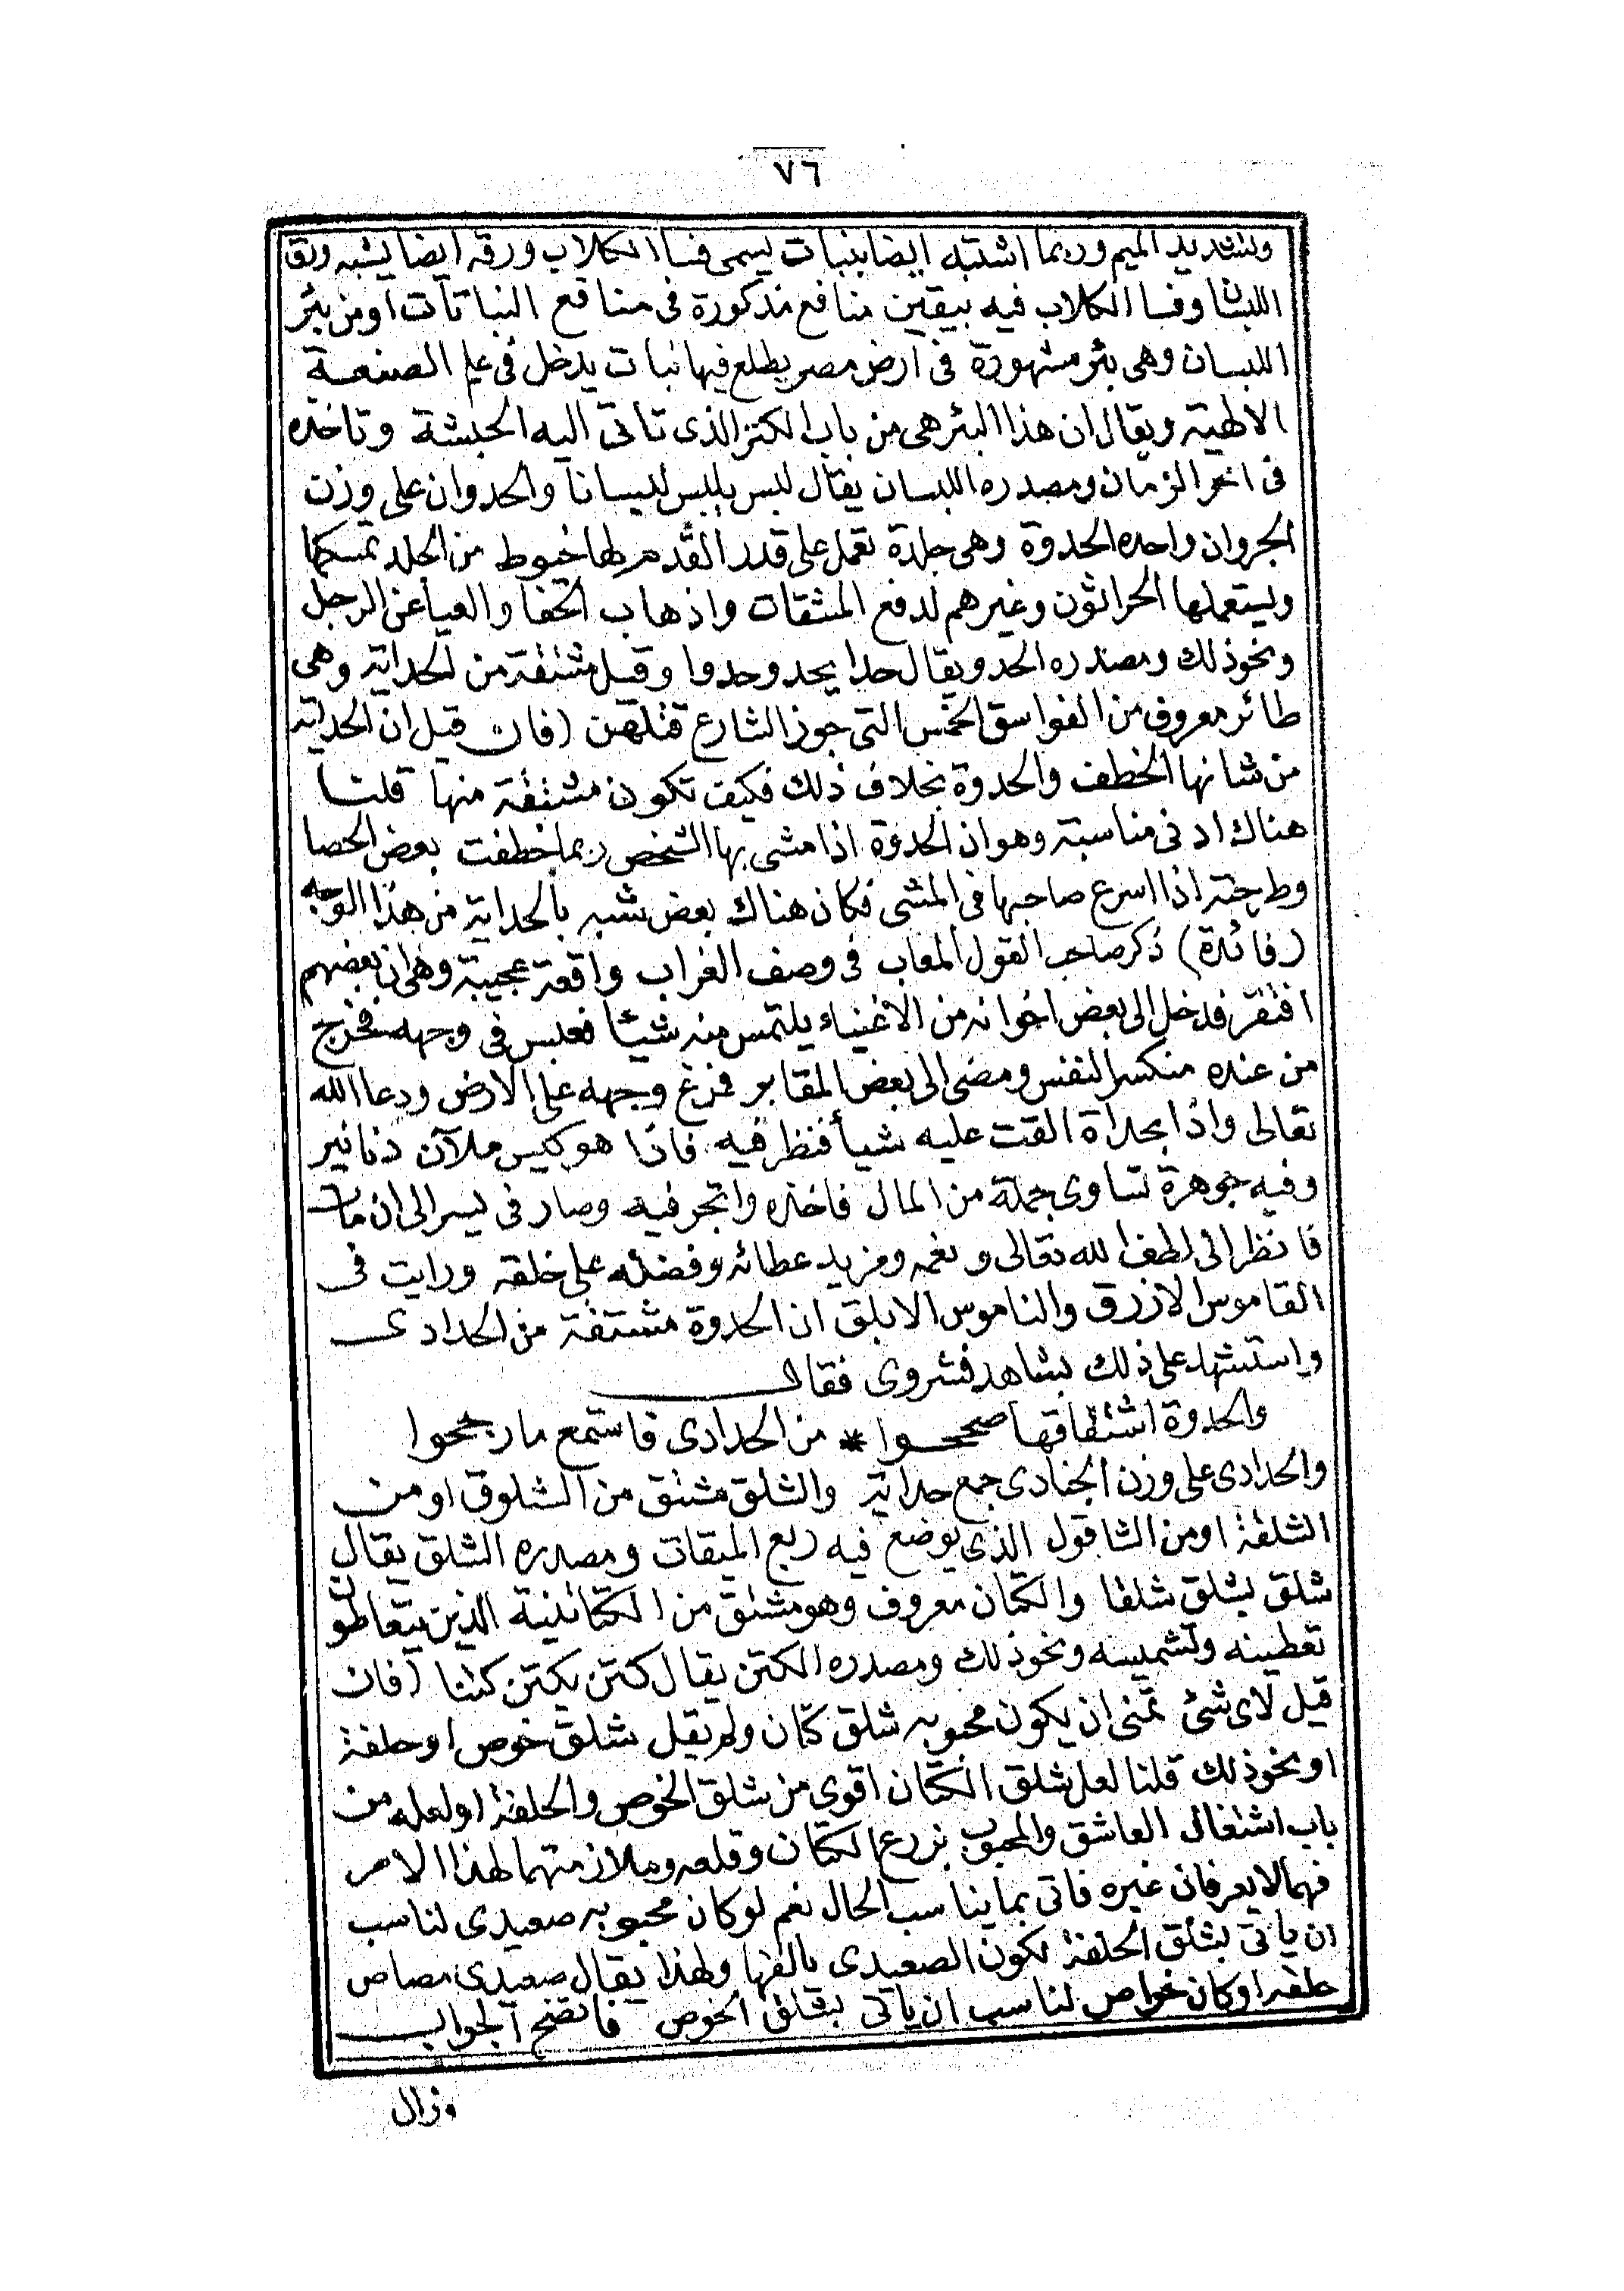 ٧٦
وتشديد الميم وربما اشتبه ايضا بنبات يسمى فسا الكلاب ورقه ايضا يشبه ورق
اللبسان وفسا الكلاب فيه بيقين منافع مذكورة فى منافع النباتات او من بئر
اللبسان وهى بئر مشهورة فى ارض مصر يطلع فيها نبات يدخل فى علم الصنعة
الالهية ويقال ان هذا البئر هى من باب الكنز الذى تاتى اليه الحبشة وتاخذه
فى اخر الزمان ومصدره اللبسان يقال لبس يلبس لبسانا والحدوان على وزن
الجروان واحده الحدوة وهى جلدة تعمل على قدر القدم لها خيوط من الجلد تمسكها
ويستعملها الحراثون وغيرهم لدفع المشقات واذهاب الحفا والعيا عن الرجل
ونحو ذلك ومصدره الحدو يقال حدا يحدو حدوا وقيل مشتقة من الحداية وهى
طائر معروف من الفواسق الخمس التى جوز الشارع قتلهن (فان قيل ان الحداية
من شانها الخطف والحدوة بخلاف ذلك فكيف تكون مشتقة منها قلنا
هناك ادنى مناسبة وهو ان الحدوة اذا مشى بها الشخص ربما خطفت بعض الحصا
وطرحته اذا اسرع صاحبها فى المشى فكان هناك بعض شبه بالحداية من هذا الوجه
(فائدة) ذكر صاحب القول المعاب فى وصف الغراب واقعة عجيبة وهى ان بعضهم
افتقر فدخل الى بعض اخوانه من الاغنياء يلتمس منه شيئا فعبس فى وجهه فخرج
من عنده منكسر النفس ومضى الى بعض المقابر فمرغ وجهه على الارض ودعا الله
تعالى واذا بحداة القت عليه شيأ فنظر فيه فاذا هو كيس ملآن دنانير
وفيه جوهرة تساوى جملة من المال فاخذه واتجر فيه وصار فى يسر الى ان مات
فانظر الى لطف الله تعالى ونعمه ومزيد عطائه وفضله على خلقه ورايت فى
القاموس الازرق والناموس الابلق ان الحدوة مشتقة من الحدادى
واستشهد على ذلك بشاهد فشروى فقال
والحدوة اشتقاقها صححوا * من الحدادى فاستمع ما رجحوا
والحدادى على وزن الجنادى جمع حداية والشلق مشتق من الشلوق او من
الشلقة او من الشاقول الذى يوضع فيه ربع الميقات ومصدره الشلق يقال
شلق يشلق شلقا والكتان معروف وهو مشتق من الكتاتينية الذين يتعاطوا
تعطينه وتشميسه ونحو ذلك ومصدره الكتن يقال كتن يكتن كتنا (فان
قيل لاى شئ تمنى ان يكون محبوبه شلق كتان ولم يقل شلق خوص او حلفة
او نحو ذلك قلنا لعل شلق الكتان اقوى من شلق الخوص والحلفة او لعله من
باب اشتغال العاشق والمحبوب بزرع الكتان وقلعه وملازمتهما لهذا الامر
فهما لا يعرفان غيره فاتى بما يناسب الحال نعم لو كان محبوبه صعيدى لناسب
ان ياتى بشلق الحلفة لكون الصعيدى يالفها ولهذا يقال صعيدى مصاص
حلفه او كان خواص لناسب ان ياتى بشلق الخوص فاتضح الجواب
وزال